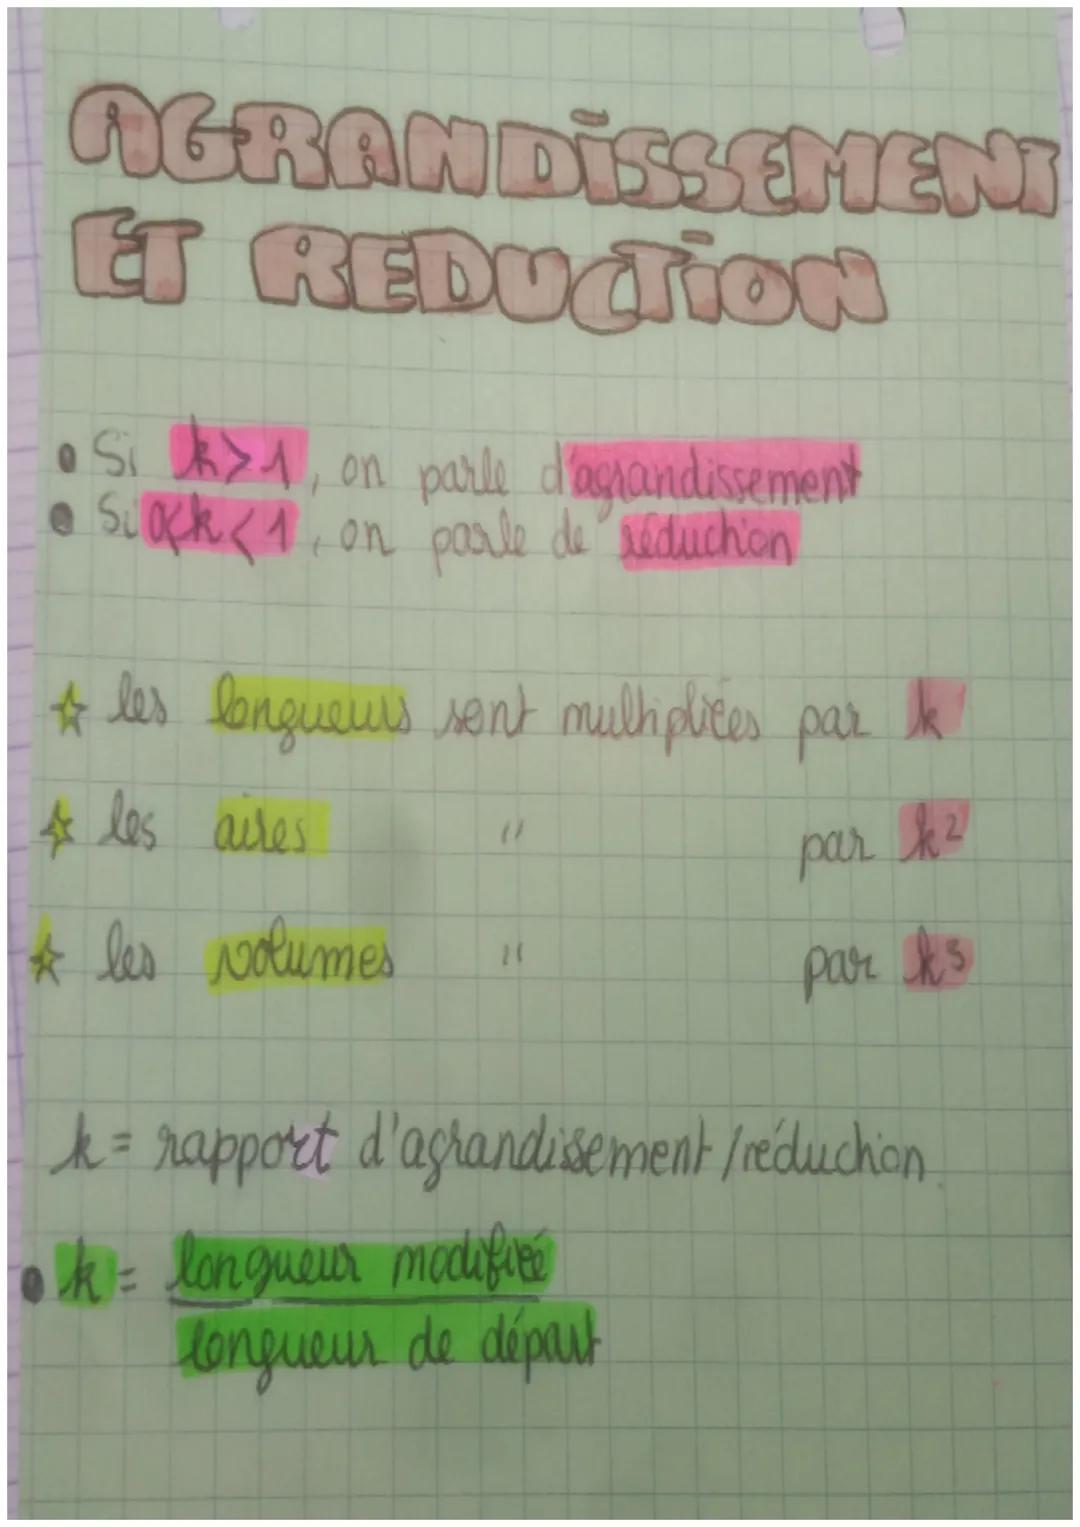 AGRANDISSEMENT
ET REDUCTION
• Si k>1, on parle d'agrandissement
• Si 0<k<1, on parle de réduction
☆ les longueurs sont multipliées par k
☆ les aires " par k²
☆ les volumes " par k³
k = rapport d'agrandissement/réduction.
• k = longueur modifiée
longueur de départ